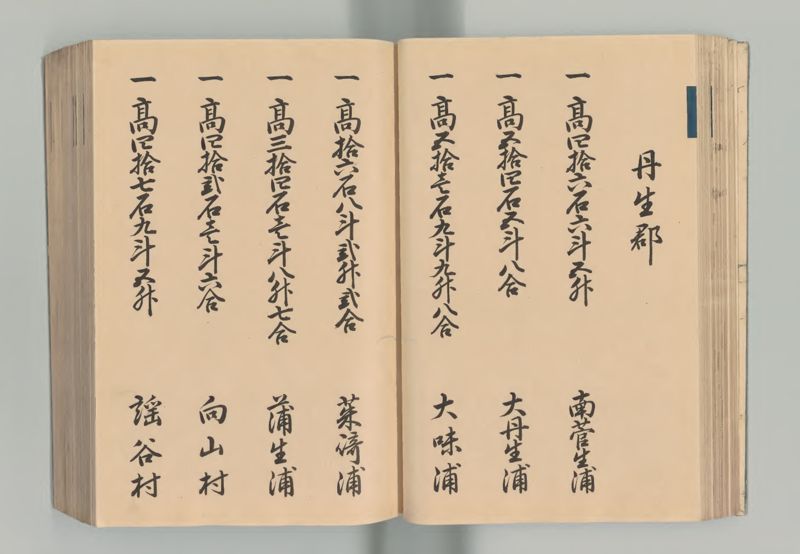 丹生郡
一 高四拾六石六斗五升 南菅生浦
一 高五拾四石五斗八合 大丹生浦
一 高五拾壱石九斗九升八合 大味浦
一 高拾六石八斗弐升弐合 菜崎浦
一 高三拾四石壱斗八升七合 蒲生浦
一 高四拾弐石壱斗六合 向山村
一 高四拾七石九斗五升 謡谷村